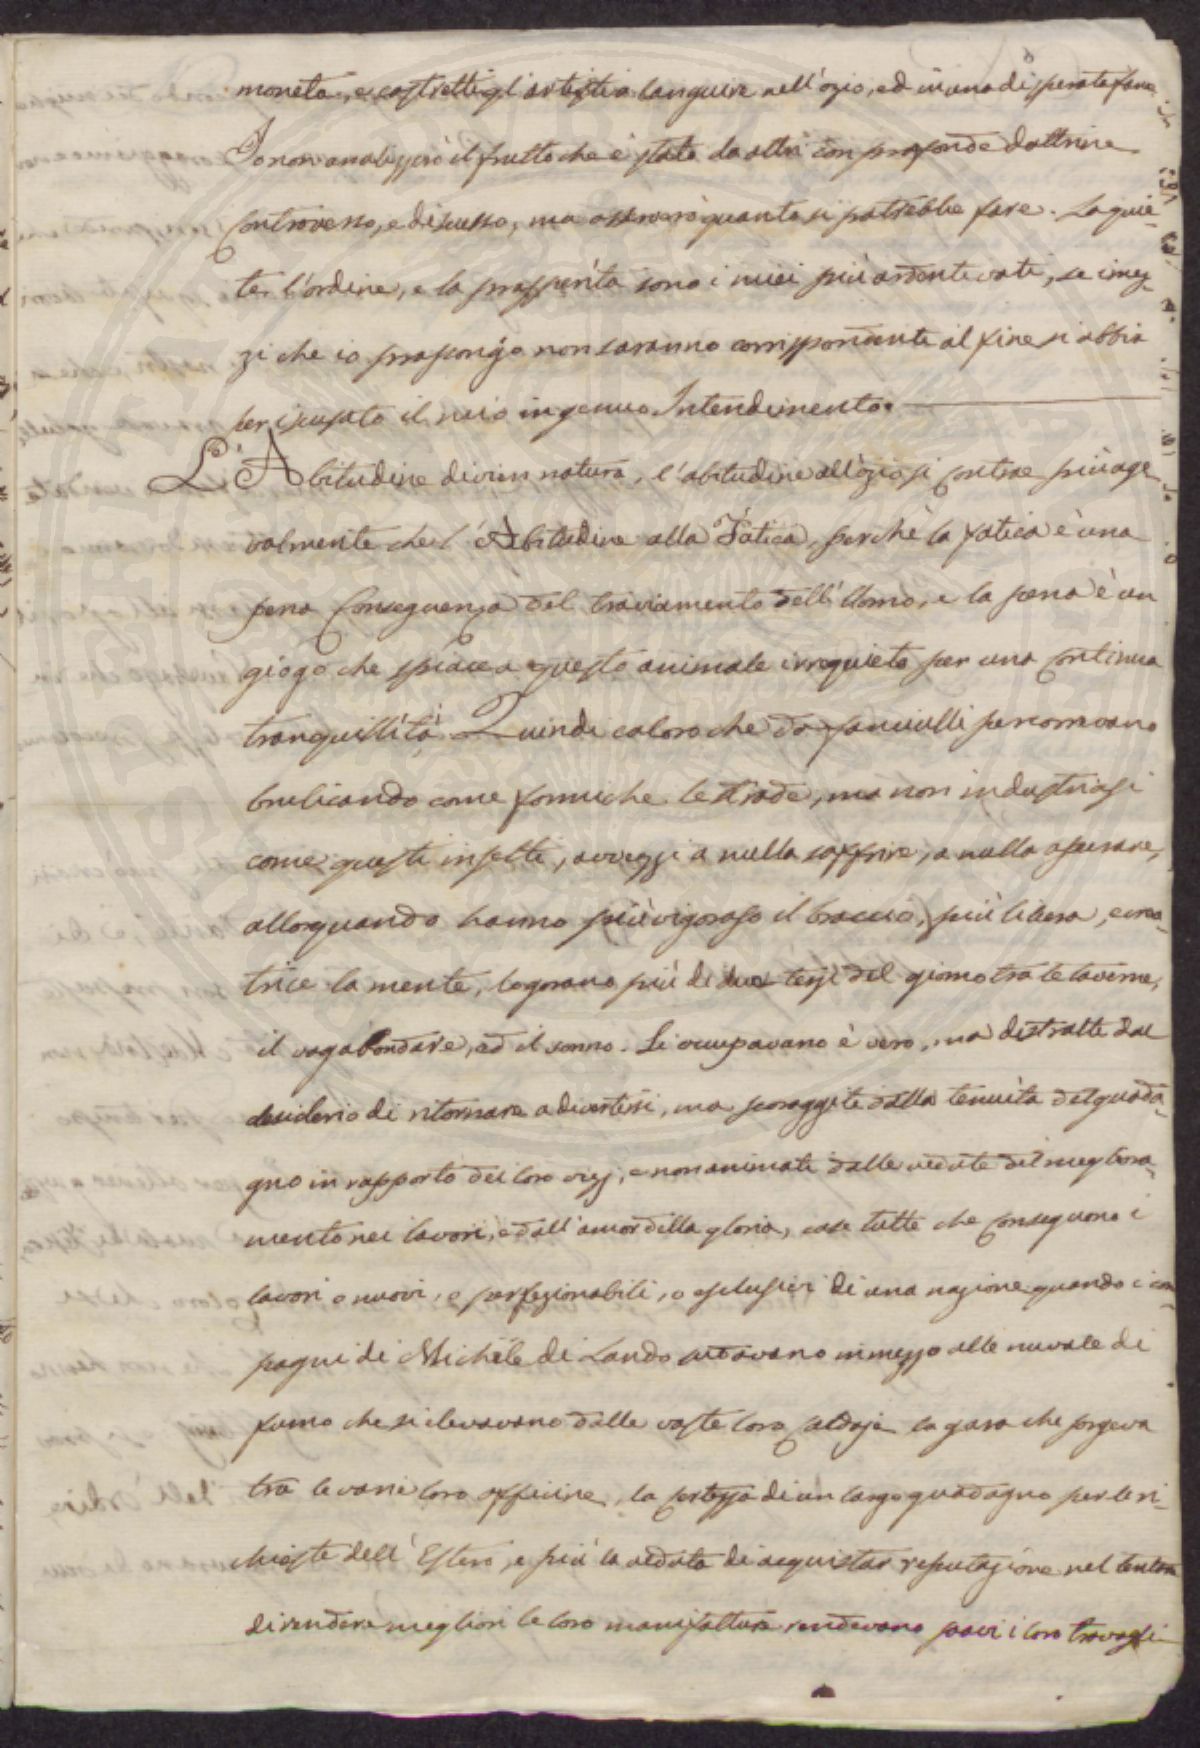 moneta, e costretti gl'artisti a languire nell'ozio, ed in una disperata fame
Io non analizzerò il frutto che è stato da altri con profonde dottrine
controverso, e discusso, ma osserverò quanto si potrebbe fare. La quie-
te, l'ordine, e la prosperità sono i miei più ardente voti, se i mez-
zi che io propongo non saranno corrispondente al fine si abbia
per iscusato il mio ingenuo Intendimento.
L'Abitudine divien natura, l'abitudine all'ozio si contrae più age
volmente che l'Abitudine alla Fatica, perchè la fatica è una
pena Conseguenza del traviamento dell'Uomo, e la pena è un
giogo che spiace a questo animale irrequieto per una continua
tranquillità. Quindi coloro che da fanciulli percorrevano
brulicando come formiche le strade, ma non industriosi
come questi insetti, avvezzi a nulla soffrire, a nulla operare,
allorquando hanno più vigoroso il braccio, più libera, e crea-
trice la mente, logorano più di due terzi del giorno tra le taverne,
il vagabondare, ed il sonno. Si occupavano è vero, ma distratte dal
desiderio di ritornare a divertirsi, ma scoraggite dalla tenuità del guada-
gno in rapporto dei loro vizj, e non animati dalle vedute del migliora-
mento nei lavori, e dall'amor della gloria, cose tutte che conseguono i
lavori o nuovi, o perfezionabili, o esclusivi di una nazione quando i com
pagni di Michele di Lando stavano in mezzo alle nuvole di
fumo che si elevavano dalle vaste loro caldaje la gara che sorgeva
tra le varie loro officine, la certezza di un largo guadagno per le ri-
chieste dell'Estero, e più la veduta di acquistar reputazione nel tentare
di rendere migliori le loro manifatture rendevano soavi i loro travagli